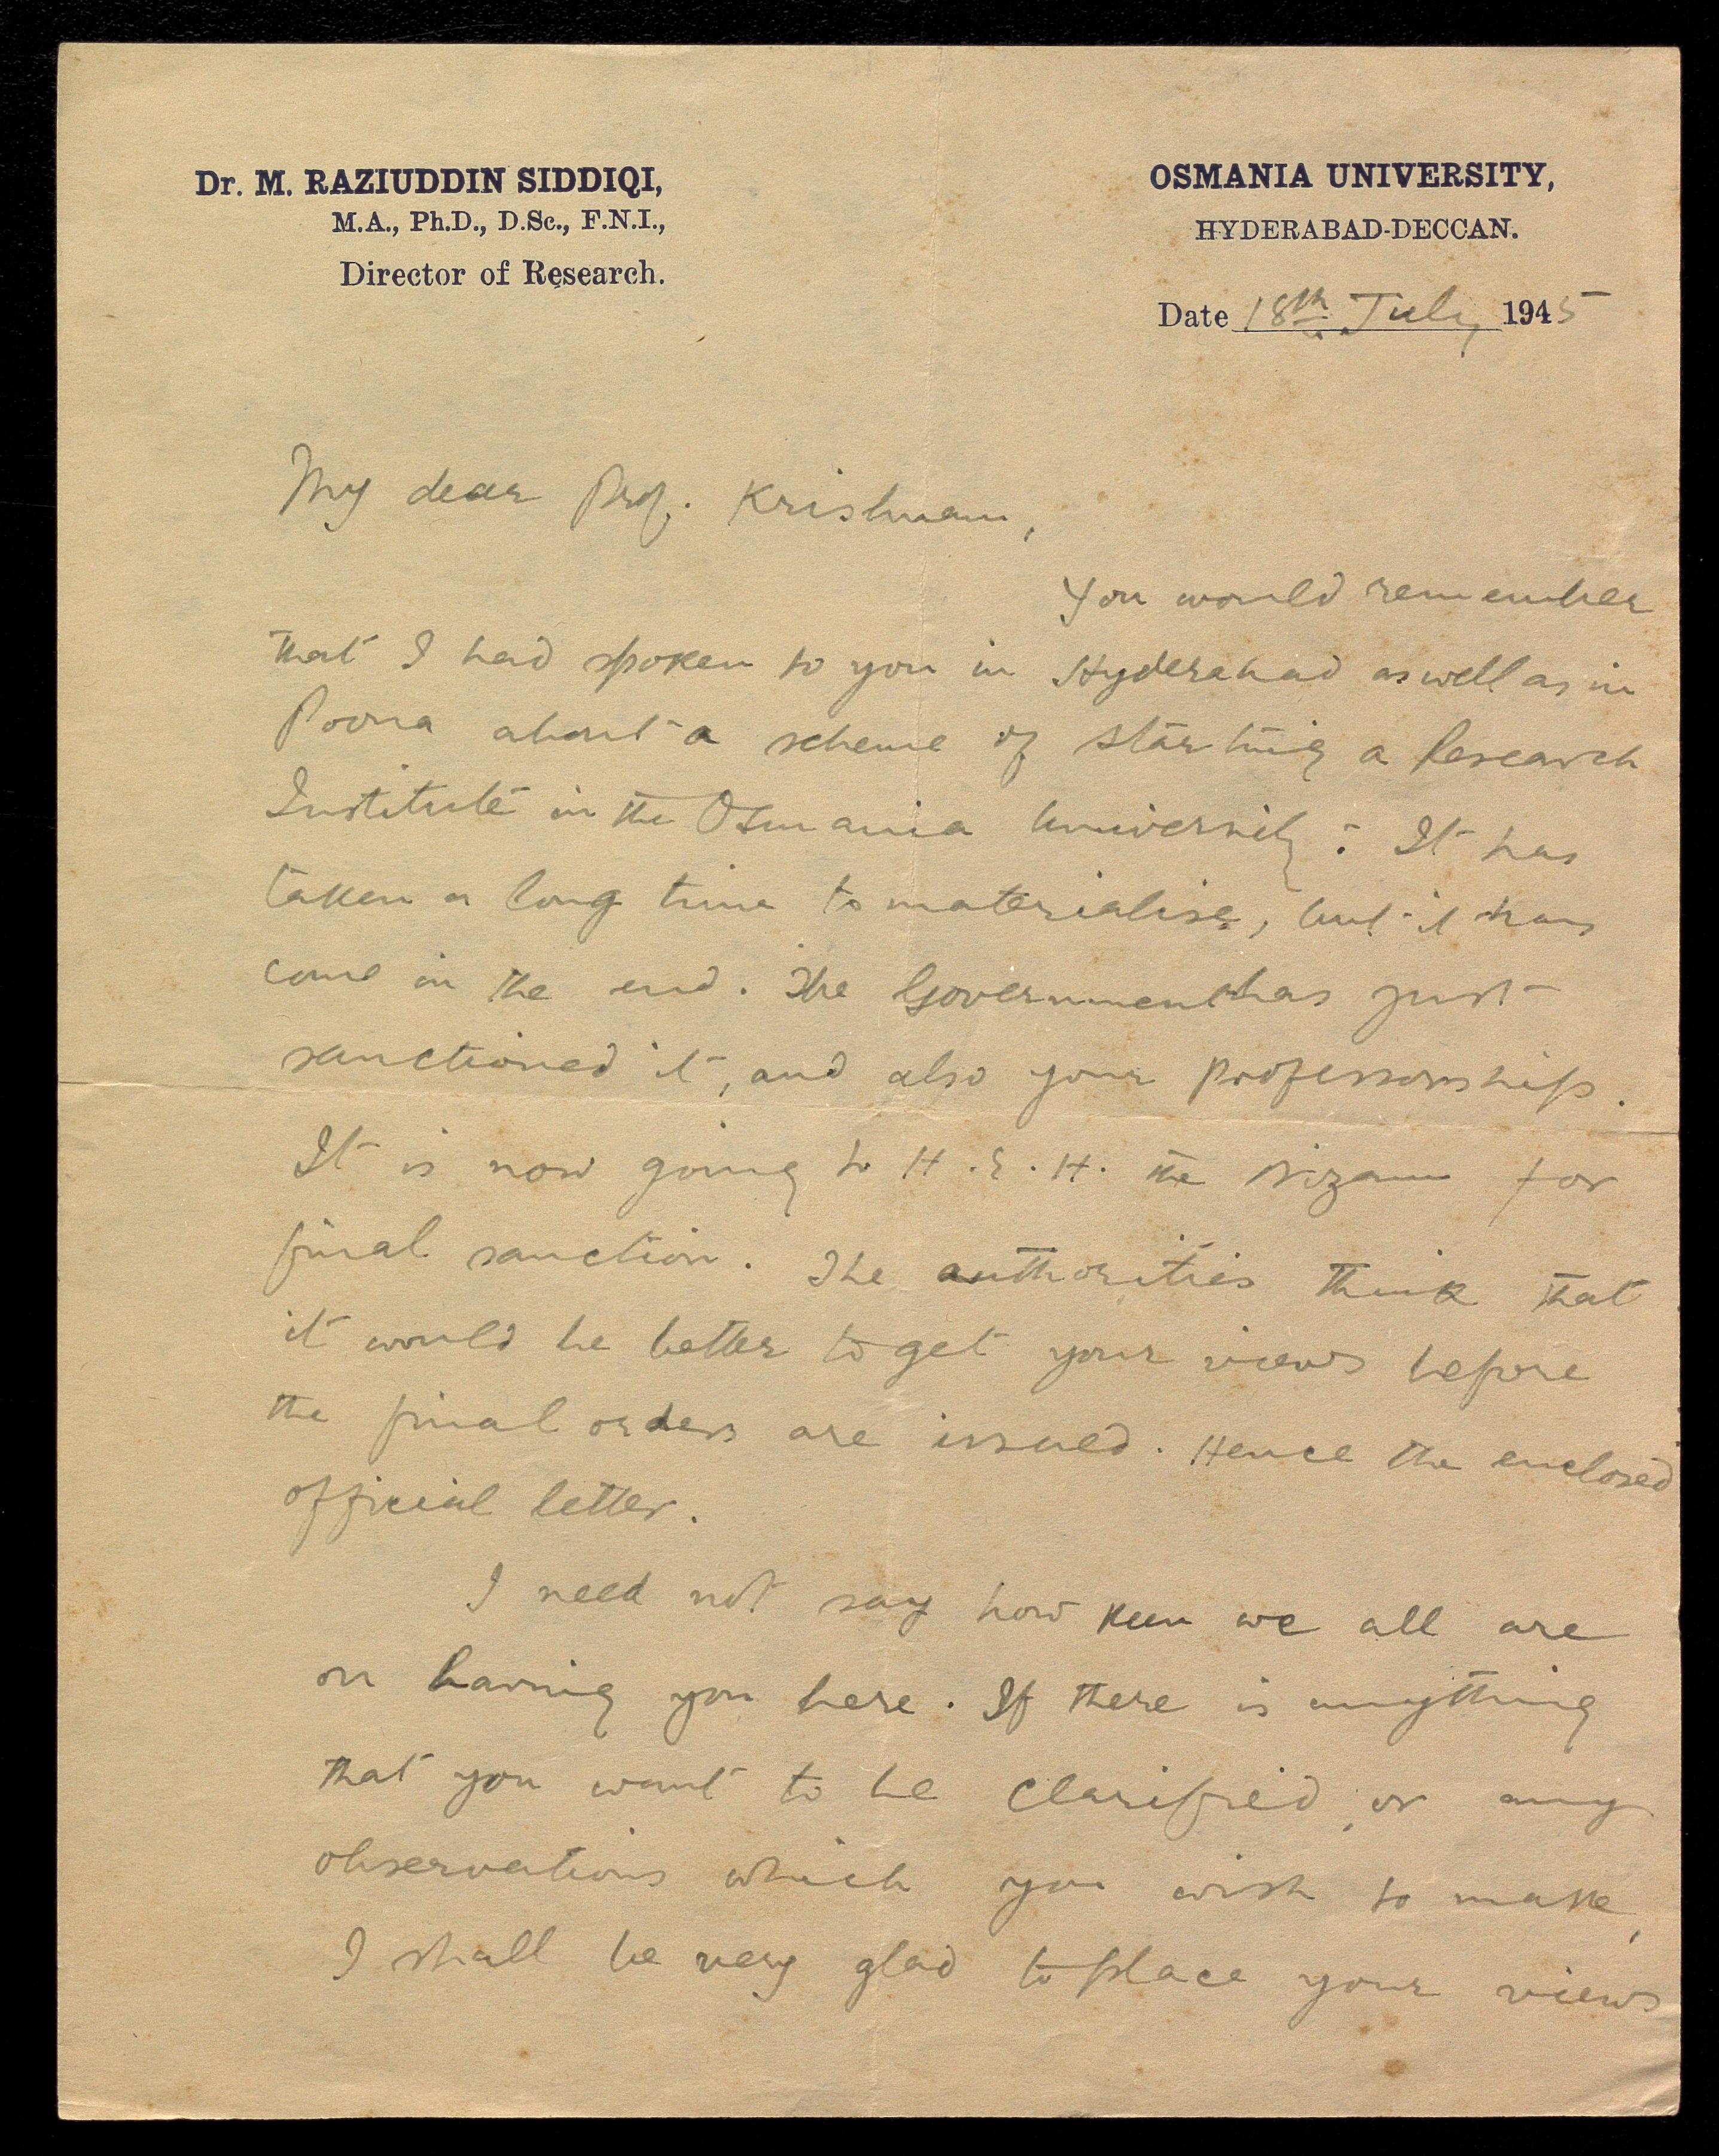 Dr. M. RAZIUDDIN SIDDIQI,
M.A., Ph.D., D.Sc., F.N.I.,
Director of Research.
OSMANIA UNIVERSITY,
HYDERABAD-DECCAN.
Date 18th July 1945
My dear Prof. Krishnan,
You would remember
that I had spoken to you in Hyderabad as well as in
Poona about a scheme of starting a Research
Institute in the Osmania University: It has
taken a long time to materialise, but it has
come in the end. The Government has just
sanctioned it, and also your professorship.
It is now going to H.E.H. the Nizam for
final sanction. The authorities think that
it would be better to get your views before
the final orders are issued. Hence the enclosed
official letter.
I need not say how keen we all are
on having you here. If there is anything
that you want to be clarified, or any
observations which you wish to make,
I shall be very glad to place your views